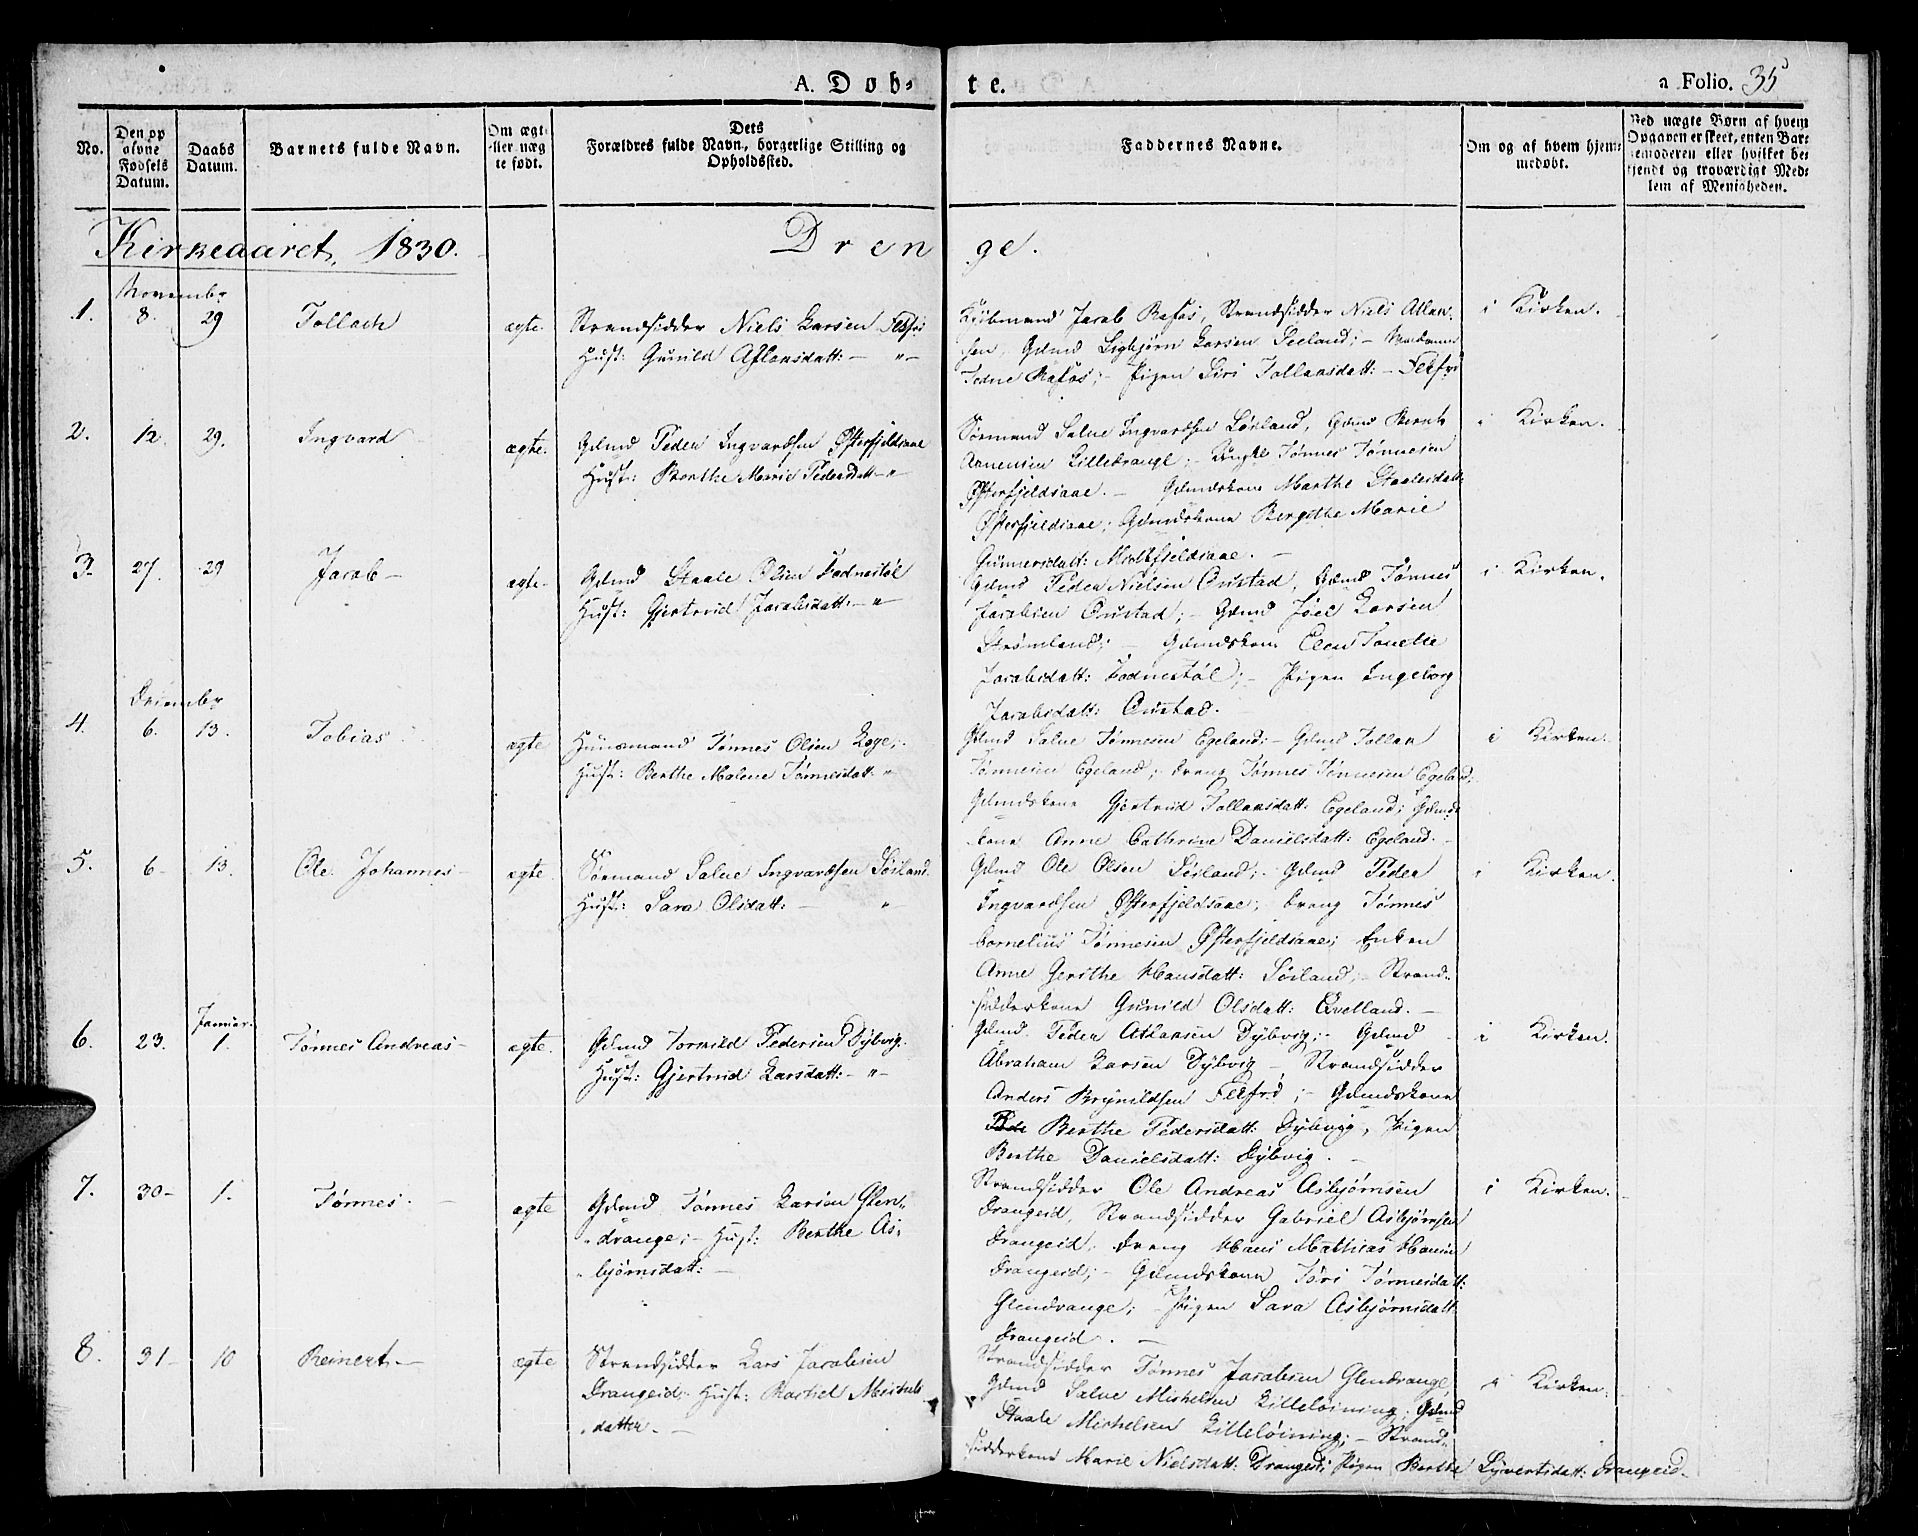 A. Døb-
te.
a Folio. 35
No.
Den op
givne
Fødsels
Datum.
Daabs
Datum.
Barnets fulde Navn.
Om ægte
eller uæg
te født.
Dets
Forældres fulde Navn, borgerlige Stilling og
Opholdssted.
Faddernes Navne.
Om og af hvem hjem-
medøbt.
Ved uægte Børn af hvem
Opgaven er skeet, enten Bar-
nemoderen eller hvilket be-
kjendt og troværdigt Med-
lem af Menigheden.
Kirkeaaret 1830.
Drenge.
November
1. 8. 29 Tollach ægte. Strandsidder Niels Larsen Fedefiord
Hust: Gunild Aslonsdatt: — "
Kjøbmand Jacob Rafos, Strandsidder Niels Atlan-
sen, Gdmd Sigbjørn Larsen Seeland; — Madame
Todne Rafos; — Pigen Siri Tollansdatt: —
i Kirken.
2. 12. 29. Ingvard — ægte. Gdmd Peder Ingvardsen Østerfjeldsaae
Hust: Berthe Marie Pedersdatt — "
Sørmand Salve Ingvardsen Søiland, Gdmd Bernt
Arnensen Lilledrange; — Ungkl Tønnes Tønnesen
Østerfjeldsaae. — Gdmdskone Marthe Staalesdatt:
Østerfjeldsaae; Gdmdskone Bergithe Marie
Gunnersdatt: Midtfjeldsaae. —
i Kirken.
3. 27. 29 Jacob — ægte. Gdmd Staale Olsen Fodnestøl
Hust: Gjertrud Jacobsdatt: — "
Gdmd Peder Nielsen Omstad, Gdmd Tønnes
Jacobsen Omstad; — Gdmd Joel Larsen
Strømland; — Gdmdskone Elen Tonette
Jacobsdatt: Fodnestøl; — Pigen Ingeborg
Jacobsdatt: Omstad.
i Kirken.
December
4. 6. 13. Tobias ægte Huusmand Tønnes Olsen Løge;
Hust: Berthe Malene Tønnesdatt: "
Gdmd Salve Tønnesen Egeland; — Gdmd Tollan
Tønnesen Egeland; Dreng Tønnes Tønnesen Egeland;
Gdmdskone Gjertrud Tollansdatt: Egeland; Gdmds
kone Anne Cathrine Danielsdatt: Egeland. —
i Kirken.
5. 6 — 13. Ole Johannes — ægte. Sørmand Salve Ingvardsen Søiland
Hust: Sara Olsdatt: — "
Gdmd Ole Olsen Søiland; — Gdmd Peder
Ingvardsen Østerfjeldsaae; Dreng Tønnes
Cornelius Tønnesen Østerfjeldsaae; Enken
Anne Gerithe Hansdatt: Søiland; — Strand-
sidderkone Gunild Olsdatt: Qvelland. —
i Kirken.
Januar.
6. 23. 1. Tønnes Andreas — ægte. Gdmd Tormild Pedersen Dybvig.
Hust: Gjertrud Larsdatt: — "
Gdmd Peder Atlaksen Dybvig; — Gdmd
Abraham Larsen Dybvig — Strandsidder
Anders Brynildsen; — Gdmdskone
Berthe Pedersdatt: Dybvig, Pigen
Berthe Danielsdatt: Dybvig. —
i Kirken.
7. 30 — 1. Tønnes. — ægte Gdmd Tønnes Larsen Glen-
drange; — Hust: Berthe As-
bjørnsdatt: —
Strandsidder Ole Andreas Asbjørnsen
Drangeid, Strandsidder Gabriel Asbjørnsen
Drangeid; Dreng Hans Mathias Hansen
Drangeid; — Gdmdskone Tóri Tønnesdatt:
Glendrange; — Pigen Sara Asbjørnsdatt
Drangeid. —
i Kirken.
8. 31 — 10 Reinert. — ægte Strandsidder Lars Jacobsen
Drangeid, Hust: Rachel Michels
datter. —
Strandsidder Tønnes Jacobsen Glendrange,
Gdmd Salve Michelsen Lilleløining, Gdmd
Staale Michelsen Lilleløining; — Strand-
sidderkone Marie Nielsdatt: Drangeid; Pigen Berthe Syvertsdatt: Drangeid.
i Kirken.